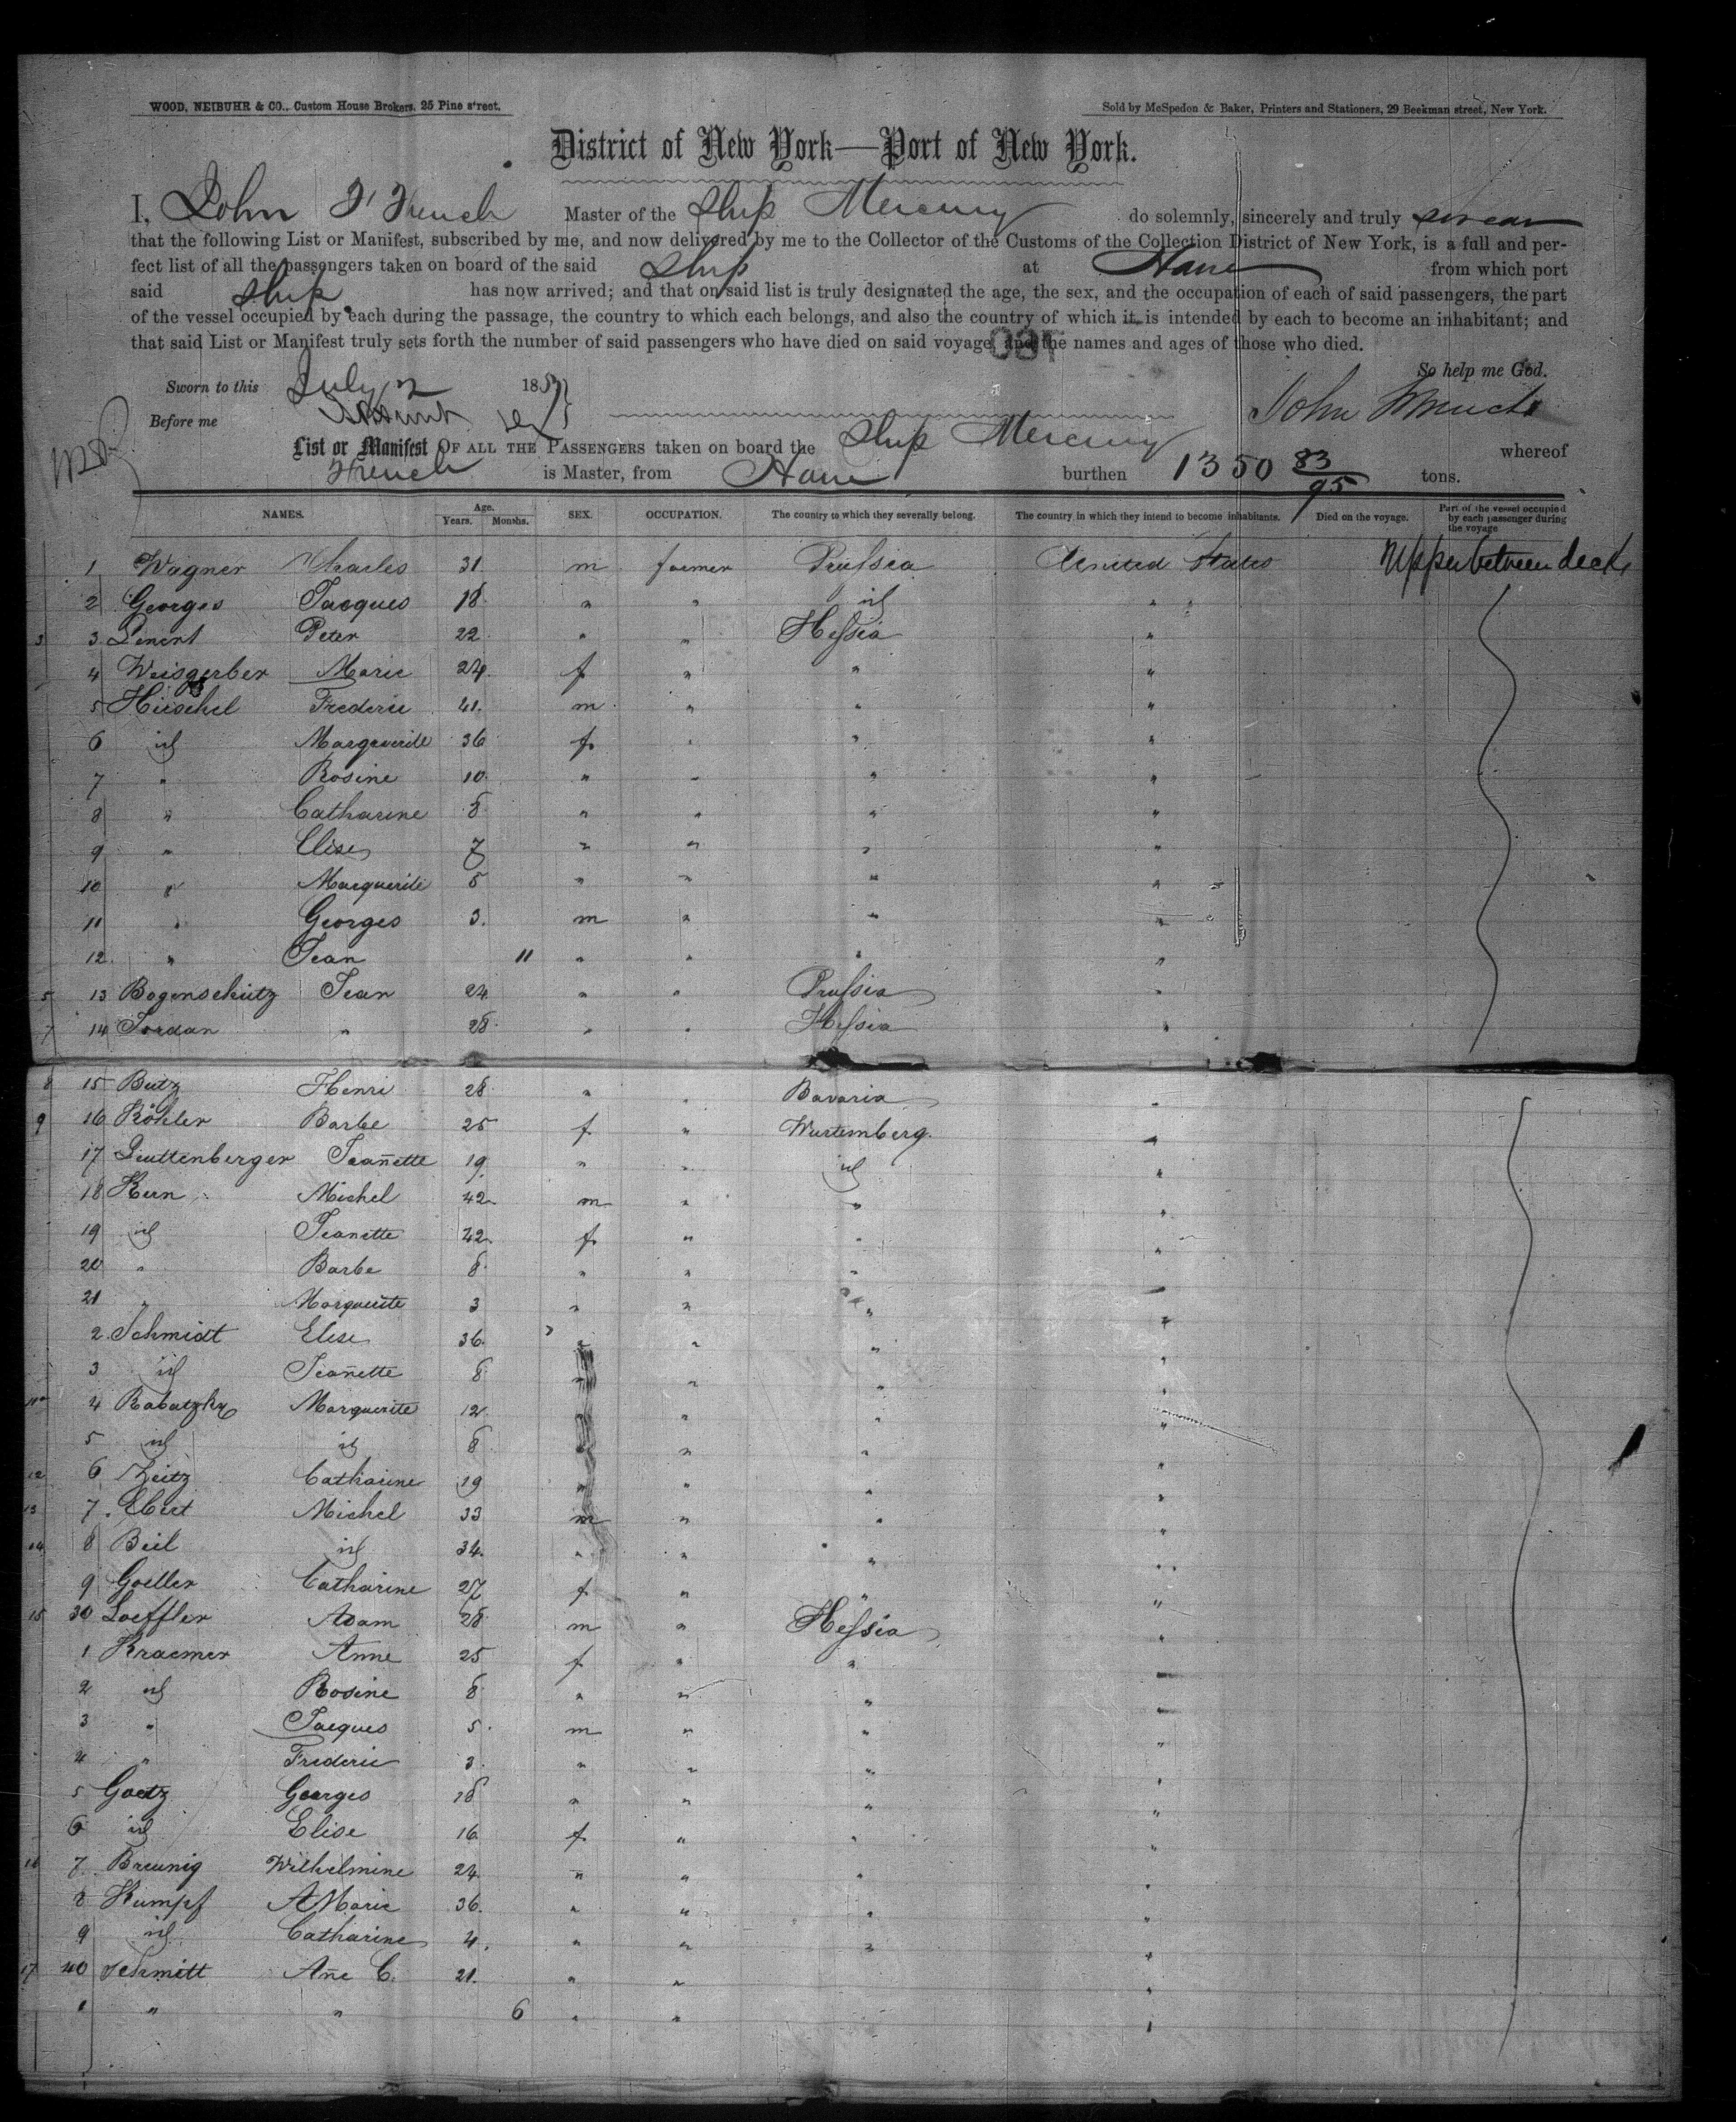 WOOD, NEIBUHR & CO., Custom House Brokers, 25 Pine street.
Sold by McSpedon & Baker, Printers and Stationers, 29 Beekman street, New York.
District of New York—Port of New York.
I, John French Master of the Ship Mercury do solemnly, sincerely and truly swear
that the following List or Manifest, subscribed by me, and now delivered by me to the Collector of the Customs of the Collection District of New York, is a full and per-
fect list of all the passengers taken on board of the said Ship at Havre from which port
said Ship has now arrived; and that on said list is truly designated the age, the sex, and the occupation of each of said passengers, the part
of the vessel occupied by each during the passage, the country to which each belongs, and also the country of which it is intended by each to become an inhabitant; and
that said List or Manifest truly sets forth the number of said passengers who have died on said voyage, and the names and ages of those who died.
So help me God.
Sworn to this July 2 185
John French
Before me
List or Manifest OF ALL THE PASSENGERS taken on board the Ship Mercury whereof
French is Master, from Havre burthen 1350 83/95 tons.
NAMES. Age. Years. Months. SEX. OCCUPATION. The country to which they severally belong. The country in which they intend to become inhabitants. Died on the voyage. Part of the vessel occupied by each passenger during the voyage
1 Wagner Charles 31 m farmer Prussia United States Upper between deck
2 Georges Jacques 18 " " id "
3 3 Lenert Peter 22 " " Hessia "
4 Weisgerber Marie 24 f " " "
5 Hirschel Frederic 41 m " " "
6 id Marguerite 36 f " " "
7 " Rosine 10 " " " "
8 " Catharine 8 " " " "
9 " Elise 7 " " " "
10 " Marguerite 5 " " " "
11 " Georges 3 m " " "
12 " Jean 11 " " " "
5 13 Bogenschutz Jean 24 " " Prussia "
7 14 Jordan " 28 " " Hessia "
8 15 Butz Henri 28 " " Bavaria "
9 16 Köhler Barbe 25 f " Wurtemberg "
17 Leuttenberger Jeañette 19 " " id "
18 Kern Michel 42 m " " "
19 id Jeanette 42 f " " "
20 " Barbe 8 " " " "
21 " Marguerite 3 " " " "
2 Schmidt Elise 36 " " " "
3 id Jeañette 8 " " " "
4 Rabatzky Marguerite 12 " " " "
5 id id 8 " " " "
12 6 Zeitz Catharine 19 " " " "
13 7 Ebert Michel 33 m " " "
14 8 Beil id 34 " " " "
9 Goeller Catharine 27 f " " "
15 30 Loeffler Adam 28 m " Hessia "
1 Kraemer Anne 25 f " " "
2 id Rosine 8 " " " "
3 " Jacques 5 m " " "
4 " Frederic 3 " " " "
5 Goetz Georges 28 " " " "
6 id Elise 16 f " " "
16 7 Breunig Wilhelmine 24 " " " "
8 Kumpf A Marie 36 " " " "
9 id Catharine 4 " " " "
17 40 Schmitt Añe C. 21 " " "
1 " " 6 " " "